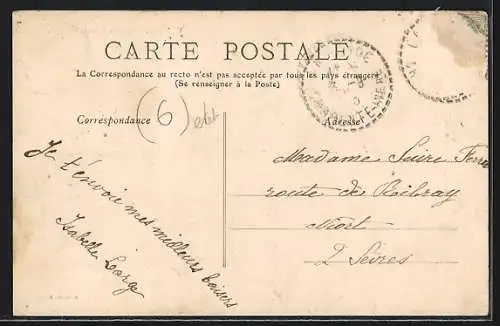 CARTE POSTALE
La Correspondance au recto n'est pas acceptée par tous les pays étrangers
(Se renseigner à la Poste)
Correspondance
Adresse
(6)
Je t'envoie mes meilleurs baisers
Isabelle Large
Madame Suire
route de Ribray
Niort
2 Sèvres